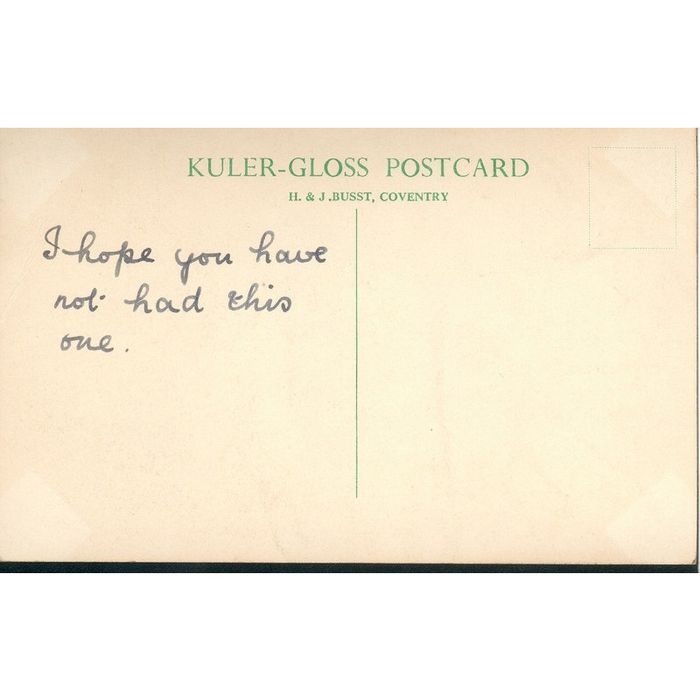 KULER-GLOSS POSTCARD
H. & J. BUSST, COVENTRY
I hope you have
not had this
one.